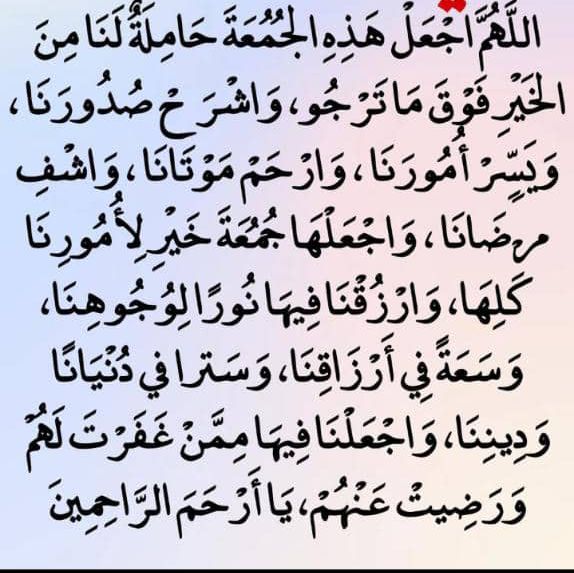 اللَّهُمَّ اجْعَلْ هَذِهِ الْجُمُعَةَ حَامِلَةً لَنَا مِنَ
الْخَيْرِ فَوْقَ مَا تَرْجُو، وَاشْرَحْ صُدُورَنَا،
وَيَسِّرْ أُمُورَنَا، وَارْحَمْ مَوْتَانَا، وَاشْفِ
مرضَانَا، وَاجْعَلْهَا جُمُعَةَ خَيْرٍ لِأُمُورِنَا
كَلِهَا، وَارْزُقْنَا فِيهَا نُورًا لِوُجُوهِنَا،
وَسَعَةً فِي أَرْزَاقِنَا، وَسَترا فِي دُنْيَانًا
وَدِينِنَا، وَاجْعَلْنَا فِيهَا مِمَّنْ غَفَرْتَ لَهُمْ
وَرَضِيتْ عَنْهُمْ، يَا أَرْحَمَ الرَّاحِمِينَ